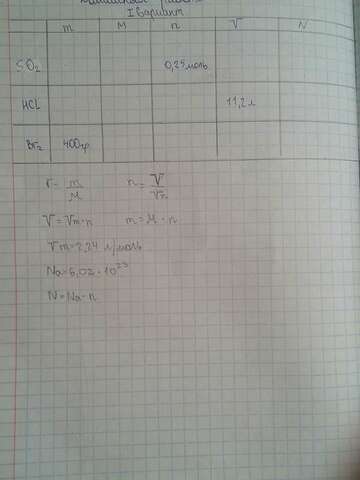 I Вариант
m M n V N
SO2 0,25 моль
HCl 11,2 л
Br2 400гр
r= m/M n= V/Vn
V=Vm·n m=M·n
Vm=2,24 л/моль
Na=6,02·10²³
N=Na·n